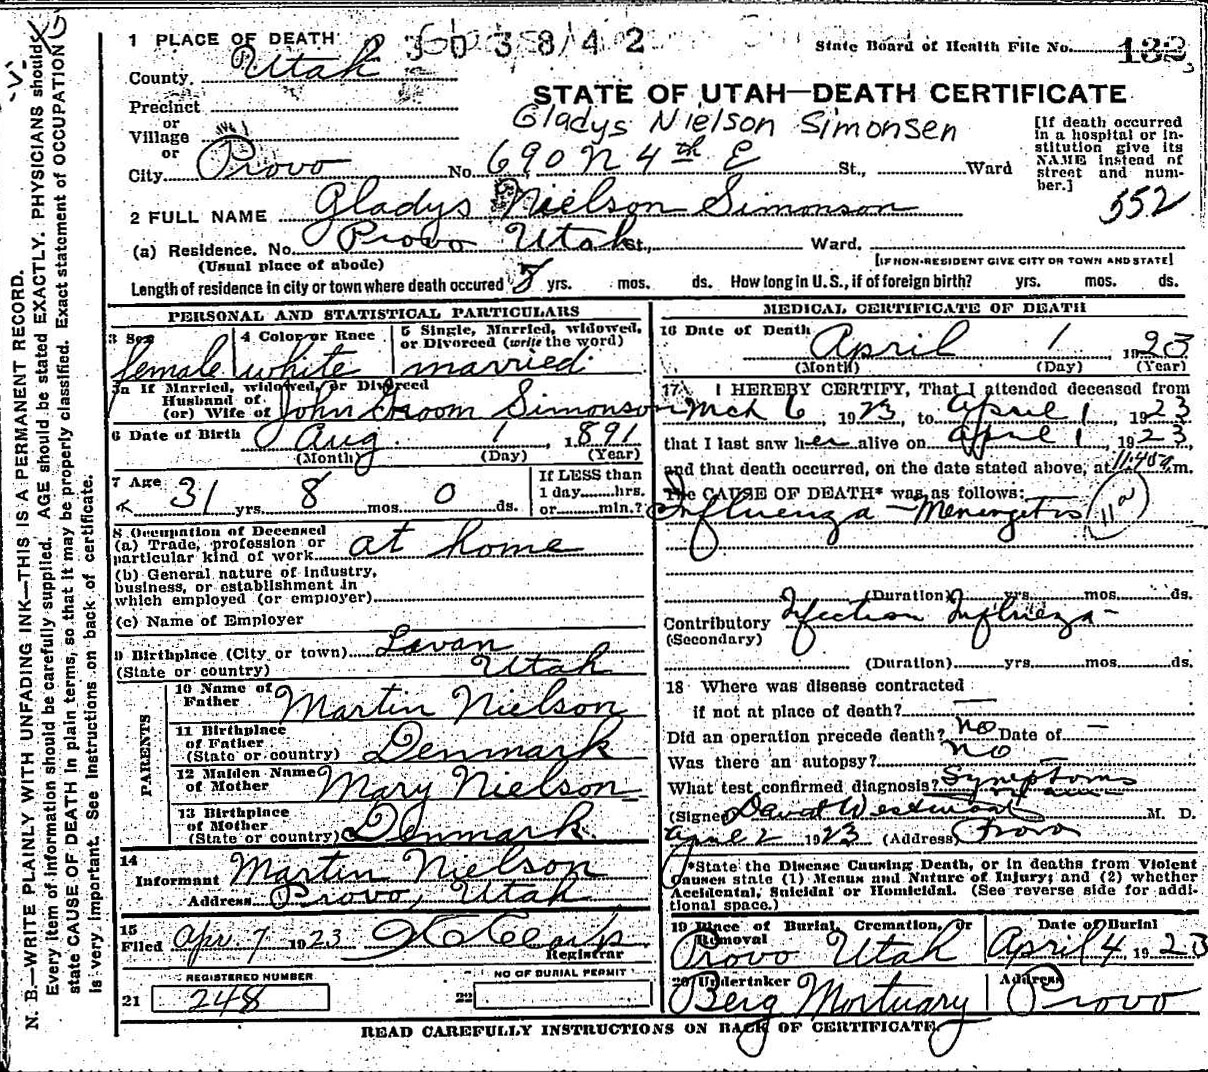 1 PLACE OF DEATH
3 0 3 8 4 2
State Board of Health File No. 132
County. Utah
STATE OF UTAH—DEATH CERTIFICATE
Precinct
or
Village
or
Gladys Nielson Simonsen
[If death occurred in a hospital or institution give its NAME instead of street and number.]
City. Provo No. 690 N 4th E St., Ward
552
2 FULL NAME Gladys Nielson Simonson
(a) Residence. No. Provo Utah St., Ward.
(Usual place of abode) [IF NON-RESIDENT GIVE CITY OR TOWN AND STATE]
Length of residence in city or town where death occured yrs. mos. ds. How long in U.S., if of foreign birth? yrs. mos. ds.
PERSONAL AND STATISTICAL PARTICULARS
3 Sex
female
4 Color or Race
white
5 Single, Married, widowed, or Divorced (write the word)
married
5a If Married, widowed, or Divorced
Husband of
(or) Wife of John Groom Simonson
6 Date of Birth Aug. 1, 1891
(Month) (Day) (Year)
7 Age
31 yrs. 8 mos. 0 ds.
If LESS than
1 day......hrs.
or......min.?
8 Occupation of Deceased
(a) Trade, profession or
particular kind of work at home
(b) General nature of industry,
business, or establishment in
which employed (or employer)
(c) Name of Employer
9 Birthplace (City or town) Levan
(State or country) Utah
PARENTS
10 Name of
Father Martin Nielson
11 Birthplace
of Father
(State or country) Denmark
12 Maiden Name
of Mother Mary Nielson
13 Birthplace
of Mother
(State or country) Denmark
14
Informant Martin Nielson
Address Provo, Utah
15
Filed Apr 7 1923
Registrar
REGISTERED NUMBER
21 248
NO OF BURIAL PERMIT
22
MEDICAL CERTIFICATE OF DEATH
16 Date of Death April 1, 1923
(Month) (Day) (Year)
17 I HEREBY CERTIFY, That I attended deceased from
Mch 6 1923, to April 1, 1923
that I last saw her alive on April 1, 1923,
and that death occurred, on the date stated above, at m.
The CAUSE OF DEATH* was as follows:
Influenza - Meningetis
(Duration) yrs. mos. ds.
Contributory Infection Influenza -
(Secondary)
(Duration) yrs. mos. ds.
18 Where was disease contracted
if not at place of death? —
Did an operation precede death? no Date of —
Was there an autopsy? no
What test confirmed diagnosis? Symptoms
(Signed) David Westwood M. D.
April 2 1923 (Address) Provo
*State the Disease Causing Death, or in deaths from Violent
Causes state (1) Means and Nature of Injury; and (2) whether
Accidental, Suicidal or Homicidal. (See reverse side for addi-
tional space.)
19 Place of Burial, Cremation, or
Removal
Provo Utah
Date of Burial
April 4, 1923
20 Undertaker
Berg Mortuary
Address
Provo
READ CAREFULLY INSTRUCTIONS ON BACK OF CERTIFICATE.
N. B.—WRITE PLAINLY WITH UNFADING INK—THIS IS A PERMANENT RECORD.
Every item of information should be carefully supplied. AGE should be stated EXACTLY. PHYSICIANS should
state CAUSE OF DEATH in plain terms, so that it may be properly classified. Exact statement of OCCUPATION
is very important. See instructions on back of certificate.